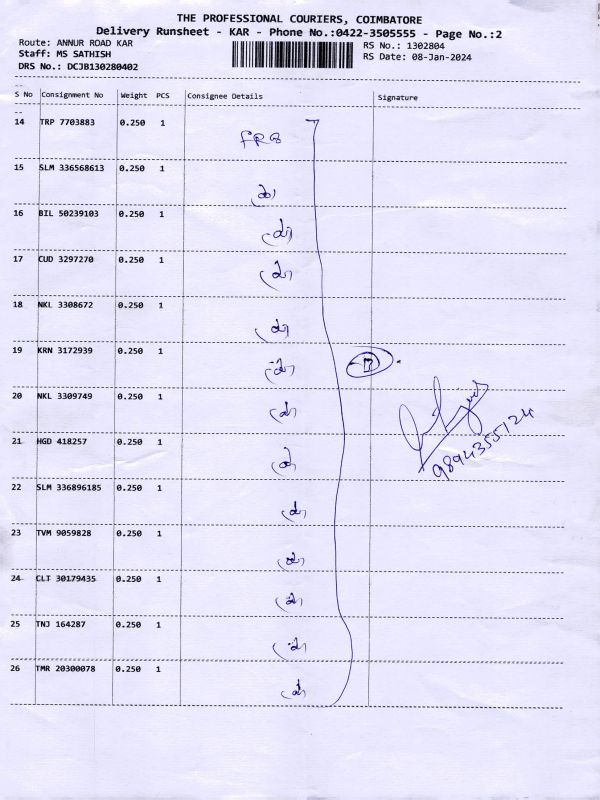 THE PROFESSIONAL COURIERS, COIMBATORE
Delivery Runsheet - KAR - Phone No.:0422-3505555 - Page No.:2
Route: ANNUR ROAD KAR RS No.: 1302804
Staff: MS SATHISH RS Date: 08-Jan-2024
DRS No.: DCJB130280402
S No Consignment No Weight PCS Consignee Details Signature
14 TRP 7703883 0.250 1
15 SLM 336568613 0.250 1
16 BIL 50239103 0.250 1
17 CUD 3297270 0.250 1
18 NKL 3308672 0.250 1
19 KRN 3172939 0.250 1
20 NKL 3309749 0.250 1
21 HGD 418257 0.250 1
9894355124
22 SLM 336896185 0.250 1
23 TVM 9059828 0.250 1
24 CLT 30179435 0.250 1
25 TNJ 164287 0.250 1
26 TMR 20300078 0.250 1